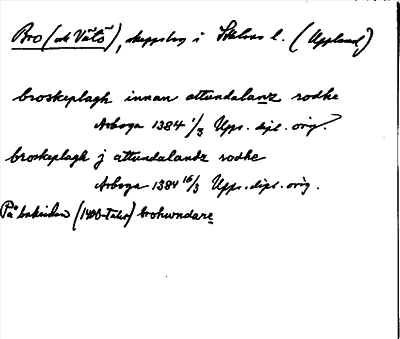 Bro (och Vätö), skeppslag i Sthlms l. (Uppland)
broskeplagh innan attundalanz rodhe
Arboga 1384 1/3 Upps. dipl. orig.
broskeplagh j attundalandz rodhe
Arboga 1384 16/3 Upps. dipl. orig.
På baksidan (1400-talet) brohwndare